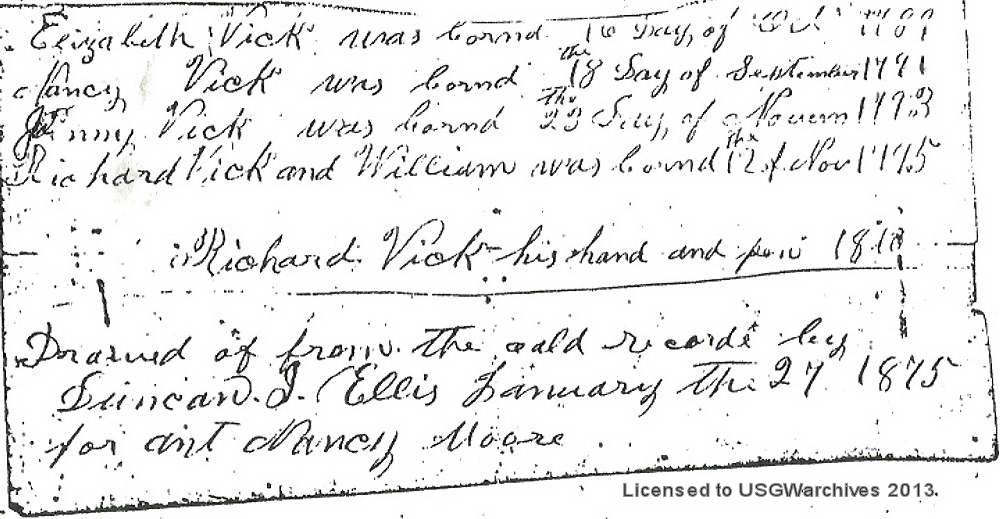 Elizabeth Vick was bornd 16 Day of Oct 1789
Nancy Vick was bornd the 18 Day of September 1791
Jinny Vick was bornd the 23 Day of Novem 1793
Richard Vick and William was bornd the 12 of Nov 1795
Richard Vick his hand and pen 18
Drawed of from the oald records by
Duncan. J. Ellis January the 27 1875
for ant Nancy Moore
Licensed to USGWarchives 2013.